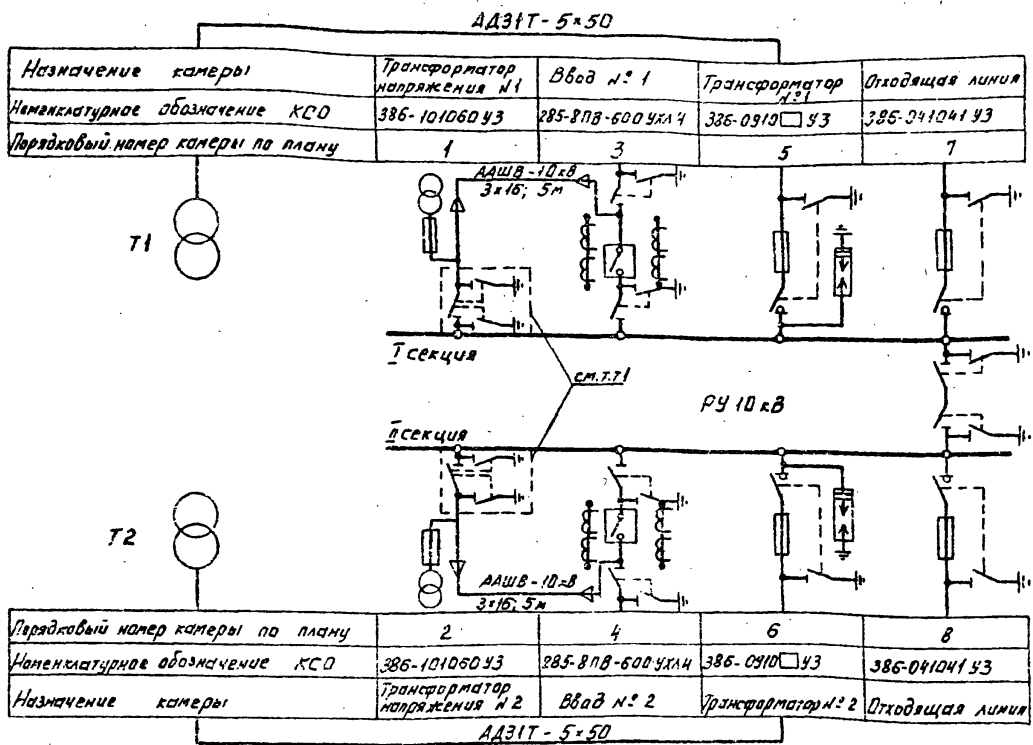 АД31Т - 5×50
Назначение камеры
Трансформатор напряжения №1
Ввод № 1
Трансформатор №1
Отходящая линия
Номенклатурное обозначение КСО
386-101060 У3
285-8ПВ-600 УХЛ4
386-0910□ У3
386-041041 У3
Порядковый номер камеры по плану
1
3
5
7
ААШВ-10кВ
3×16; 5м
Т1
I секция
см.т.т1
РУ 10 кВ
II секция
Т2
ААШВ-10кВ
3×16; 5м
Порядковый номер камеры по плану
2
4
6
8
Номенклатурное обозначение КСО
386-101060 У3
285-8ПВ-600 УХЛ4
386-0910□ У3
386-041041 У3
Назначение камеры
Трансформатор напряжения №2
Ввод № 2
Трансформатор № 2
Отходящая линия
АД31Т - 5×50